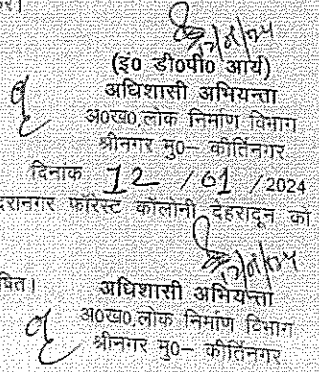 (इं० डी०पी० आर्य)
अधिशासी अभियन्ता
अ०ख०,लोक निर्माण विभाग
श्रीनगर मु०– कीर्तिनगर
दिनांक 12 /01 /2024
फॉरेस्ट कॉलोनी देहरादून को
अधिशासी अभियन्ता
अ०ख०,लोक निर्माण विभाग
श्रीनगर मु०– कीर्तिनगर